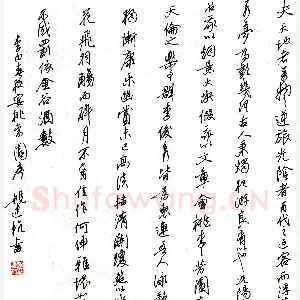 夫天地者萬物之逆旅光陰者百代之過客而浮
生若夢為歡幾何古人秉燭夜游良有以也況陽春
召我以烟景大塊假我以文章會桃李芳園序
天倫之樂事群季俊秀皆為惠連吾人詠歌
獨慚康樂幽賞未已高談轉清開瓊筵以坐
花飛羽觴而醉月不有佳作何伸雅懷如詩
不成罰依金谷酒數
李白春夜宴桃李園序
Shufawang.cn